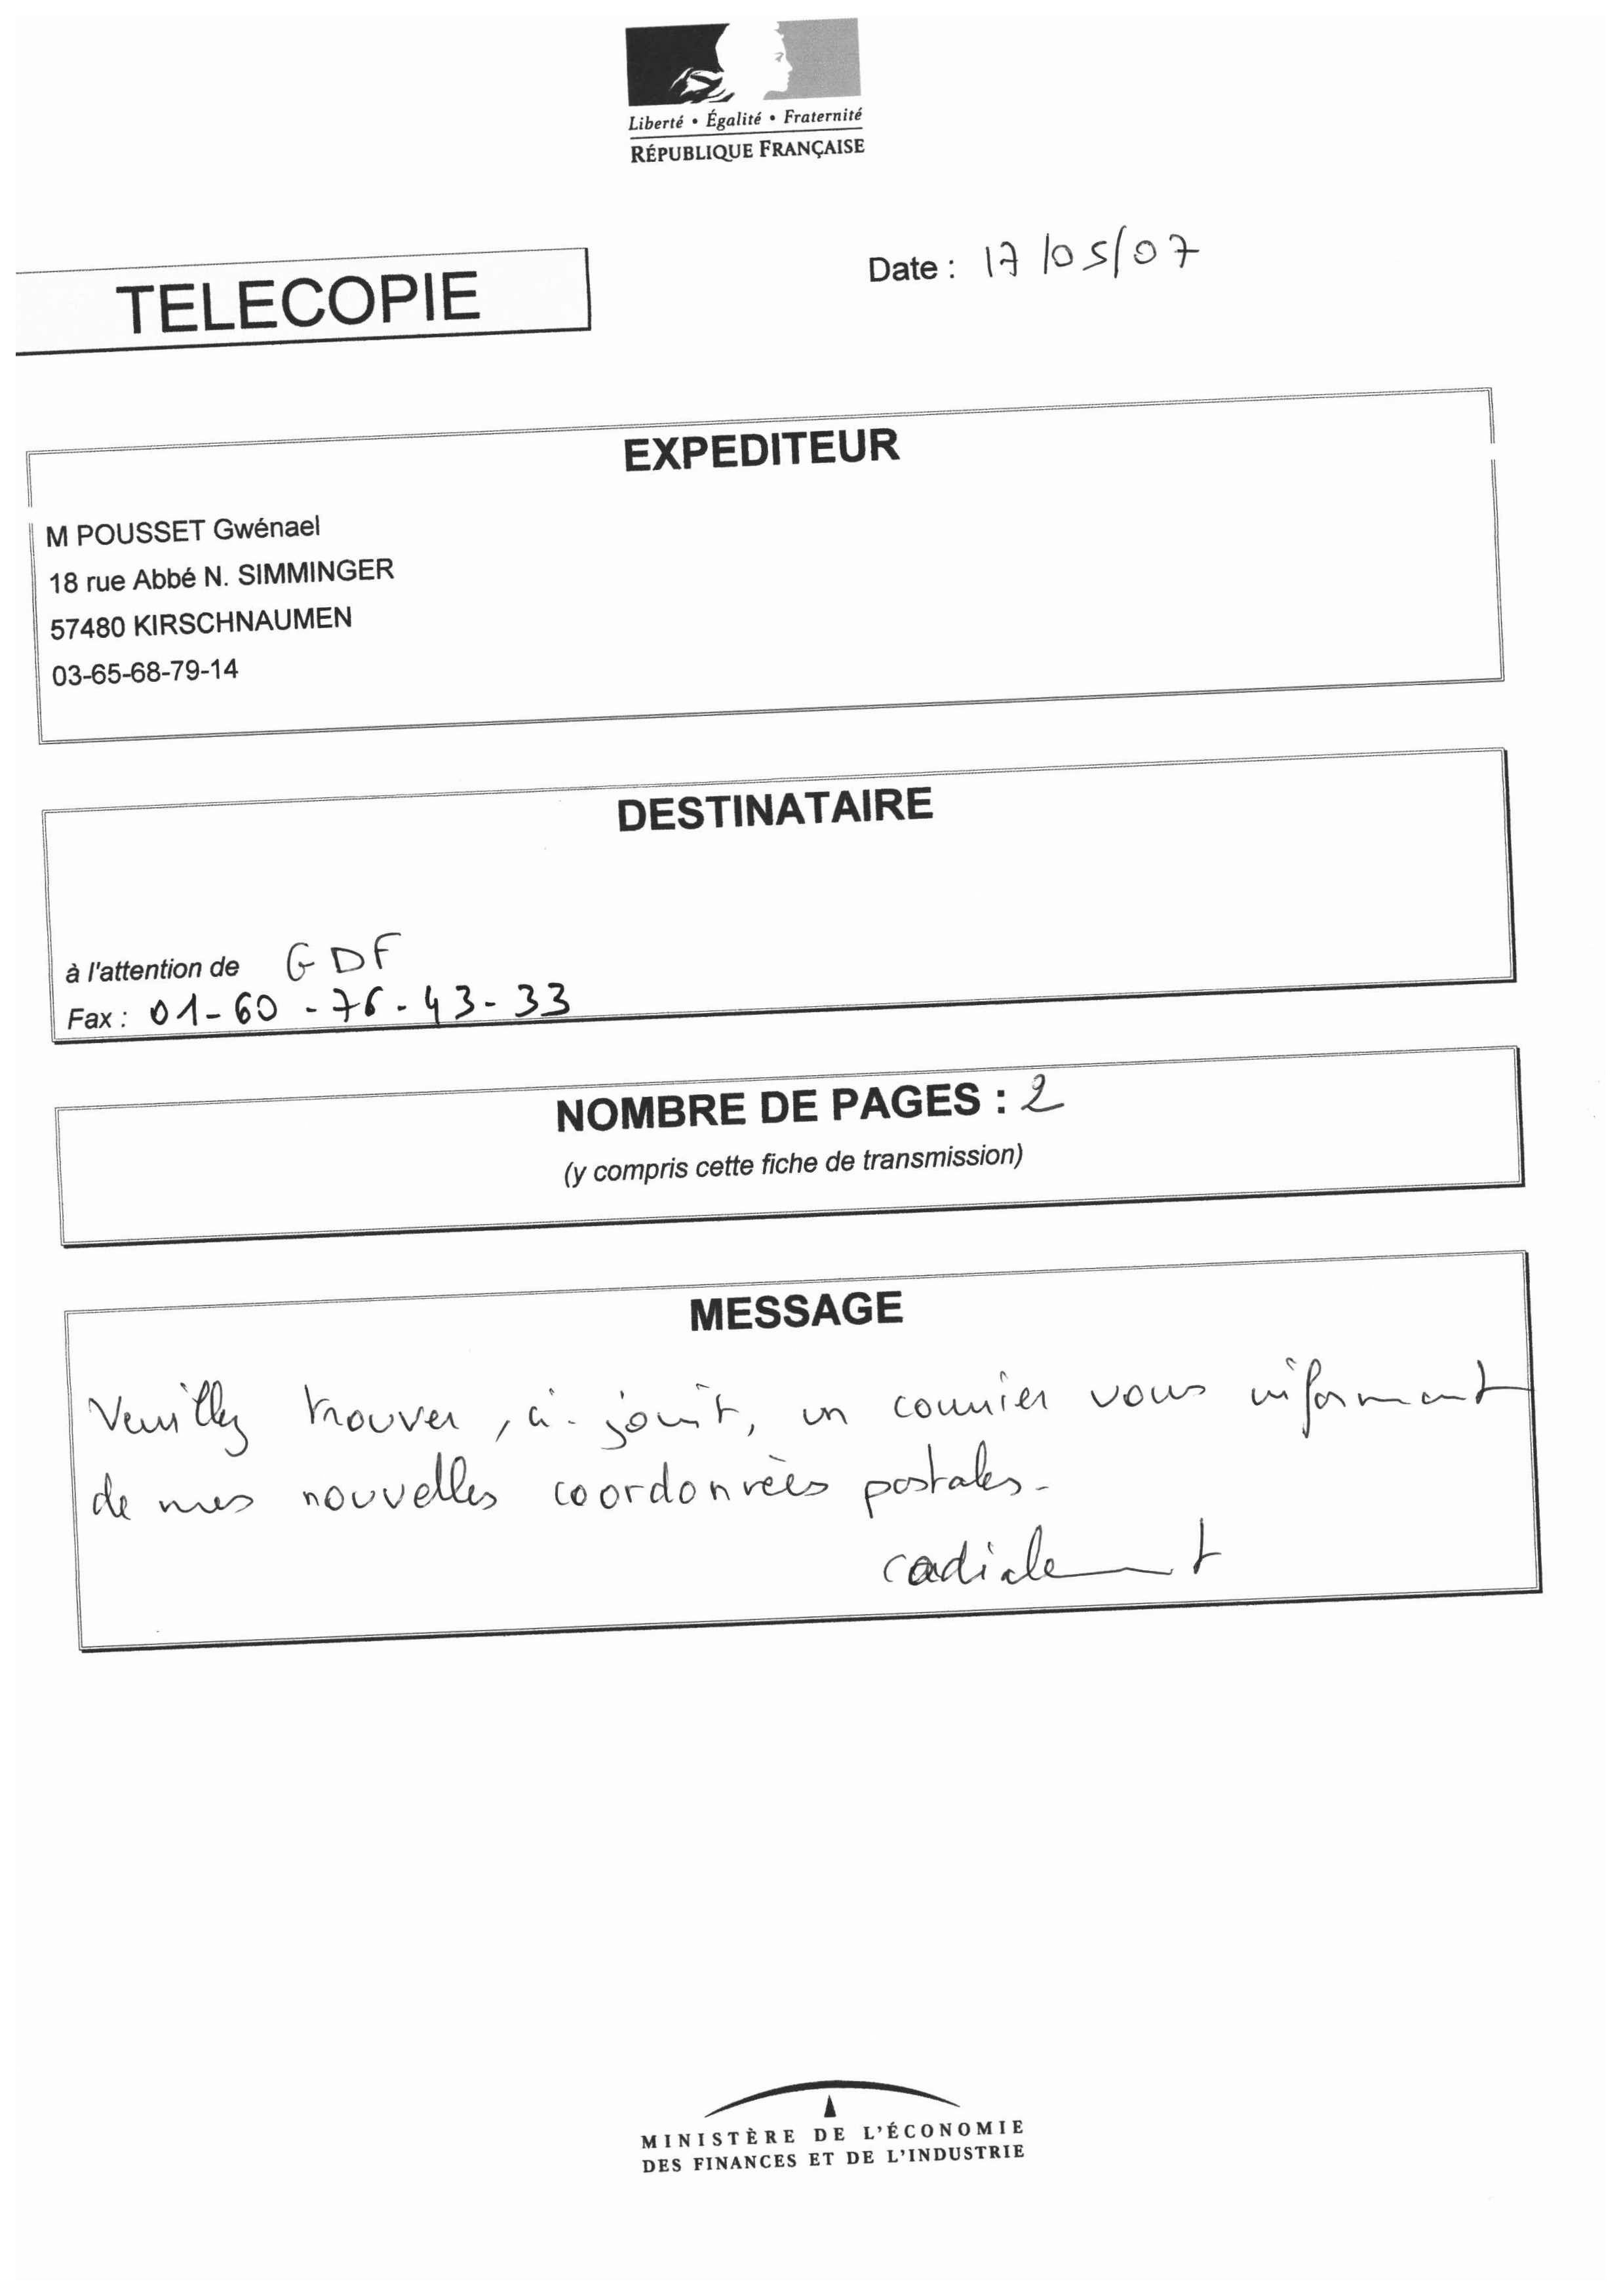 Liberté • Égalité • Fraternité
RÉPUBLIQUE FRANÇAISE
TELECOPIE
Date : 17/05/07
EXPEDITEUR
M POUSSET Gwénael
18 rue Abbé N. SIMMINGER
57480 KIRSCHNAUMEN
03-65-68-79-14
DESTINATAIRE
à l'attention de GDF
Fax : 01-60-76-43-33
NOMBRE DE PAGES : 2
(y compris cette fiche de transmission)
MESSAGE
Veuillez trouver, ci-joint, un courrier vous informant
de mes nouvelles coordonnées postales.
cordialement
MINISTÈRE DE L'ÉCONOMIE
DES FINANCES ET DE L'INDUSTRIE